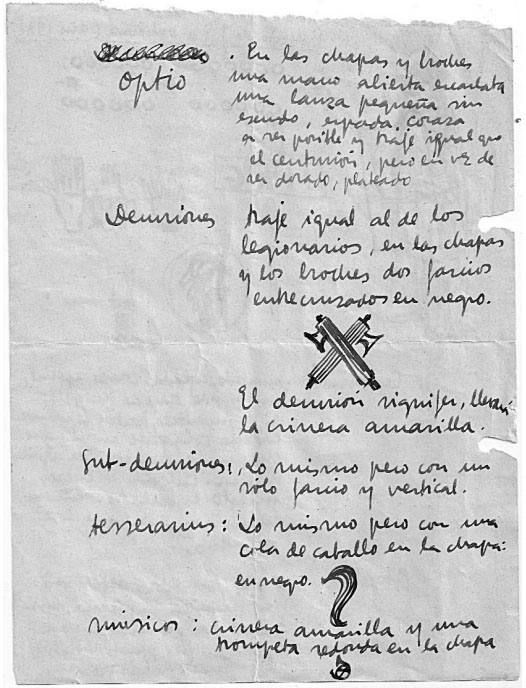 Optio . En las chapas y broches
una mano abierta escarlata
una lanza pequeña sin
escudo, espada, coraza
a ser posible y traje igual que
el centurión, pero en vez de
ser dorado, plateado
Decuriones traje igual al de los
legionarios, en las chapas
y los broches dos fascios
entrecruzados en negro.
El decurión signifer, llevará
la crinera amarilla.
Sub-decuriones: Lo mismo pero con un
sólo fascio y vertical.
tesserarius: Lo mismo pero con una
cola de caballo en la chapa:
en negro.
músicos: crinera amarilla y una
trompeta redonda en la chapa